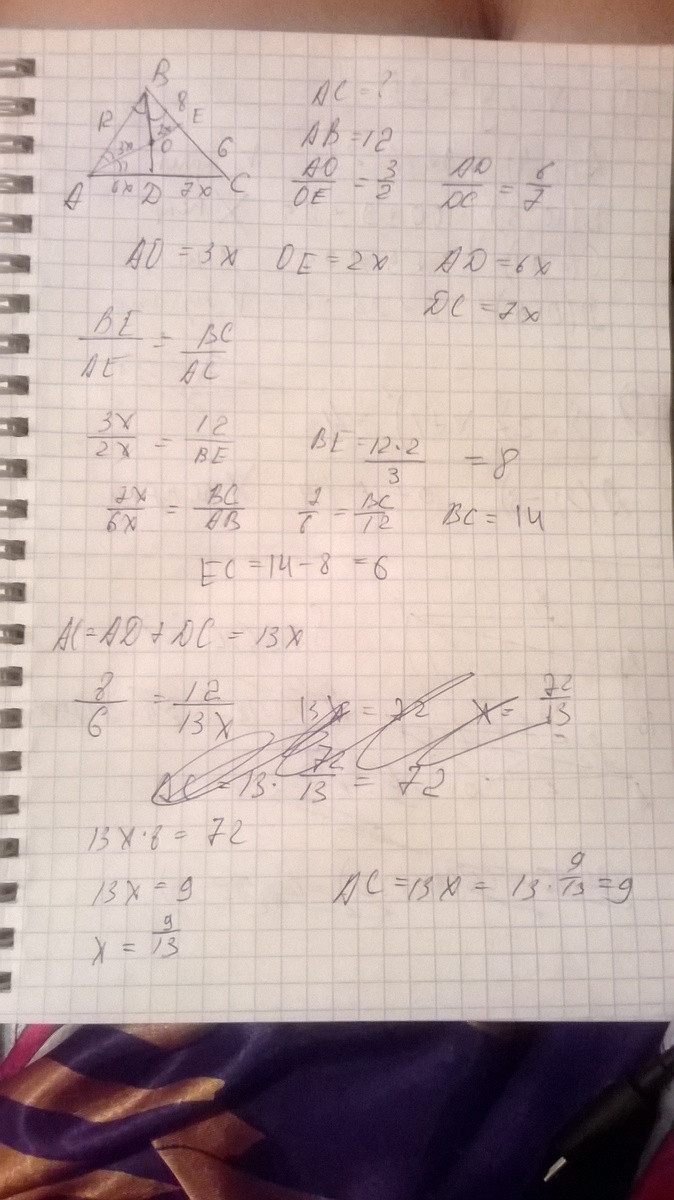 B
8
12
E
2x
3x
O
6
A
6x
D
7x
C
AC = ?
AB = 12
AO/OE = 3/2
AD/DC = 6/7
AO = 3x   OE = 2x   AD = 6x
DC = 7x
BE/AE = BC/AC
3x/2x = 12/BE   BE = 12·2/3 = 8
7x/6x = BC/AB   7/6 = BC/12   BC = 14
EC = 14 - 8 = 6
AC = AD + DC = 13x
8/6 = 12/13x   13x = 72   x = 72/13
AC = 13 · 72/13 = 72
13x·8 = 72
13x = 9   AC = 13x = 13 · 9/13 = 9
x = 9/13